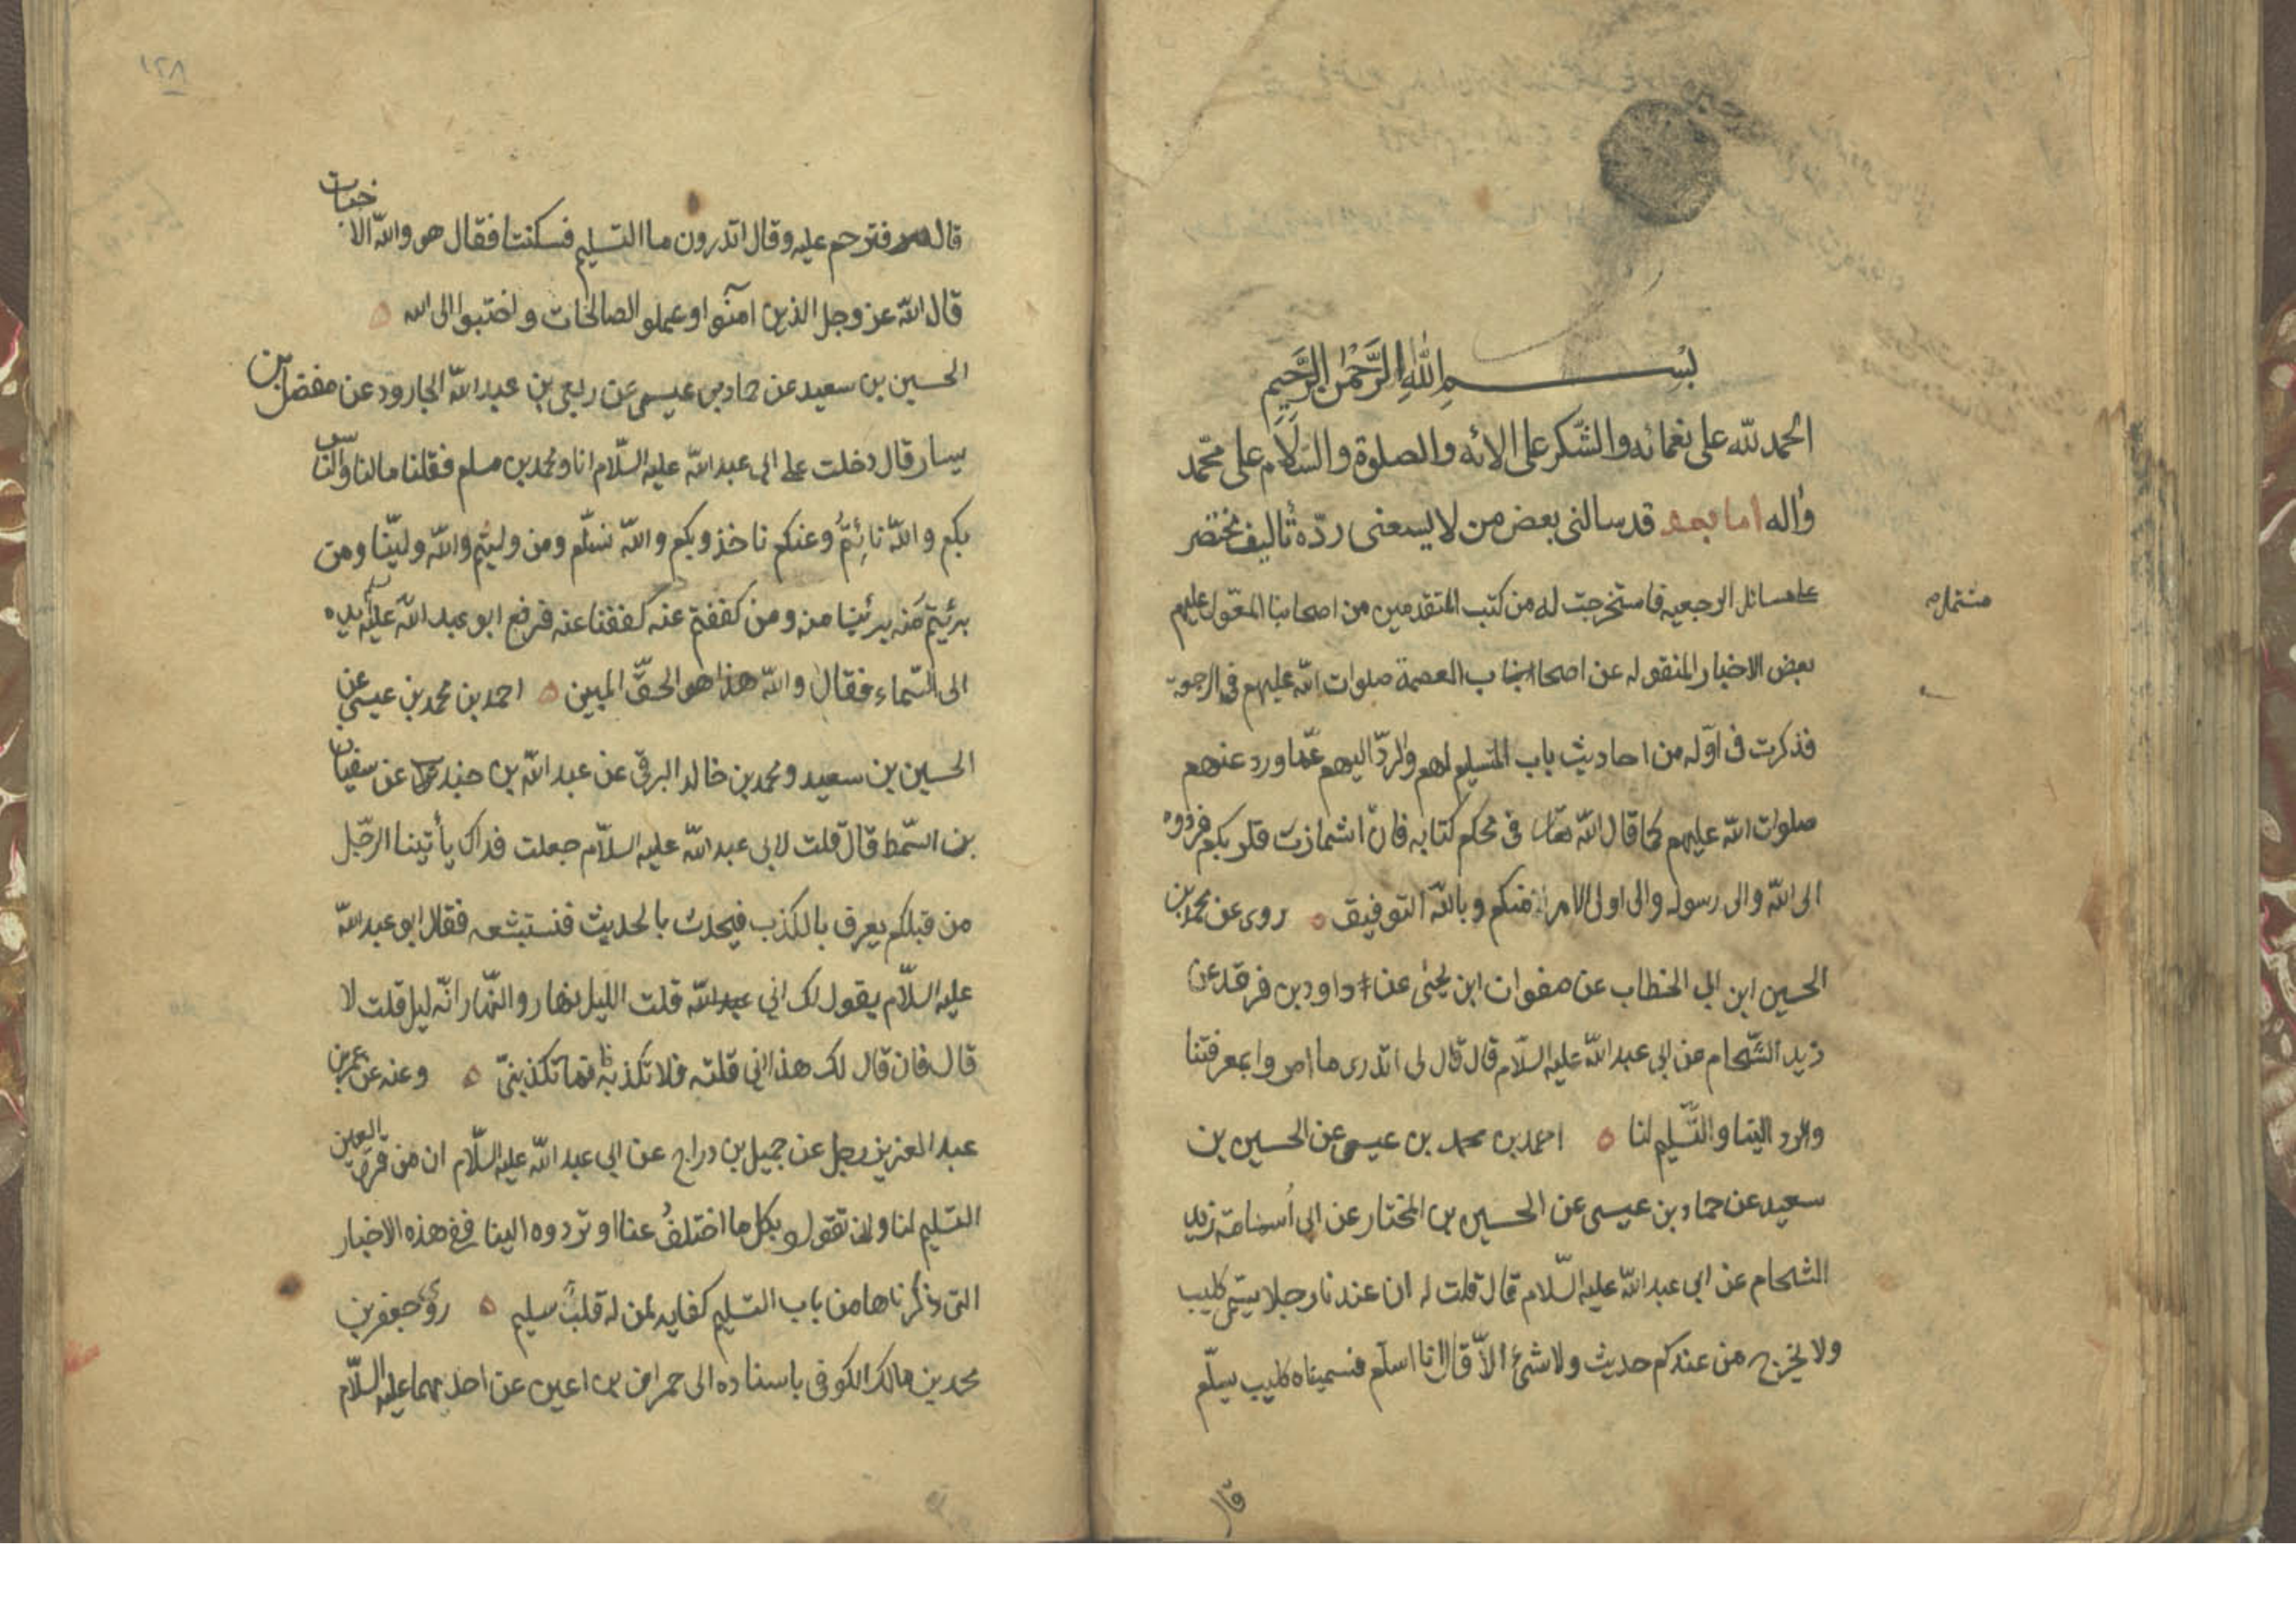 بسم الله الرحمن الرحيم
الحمد لله على نعمائه والشكر على الائه والصلوة والسلام على محمد
واله اما بعد قد سالنى بعض من لا يسعنى ردّه تأليف مختصر
مشتمل
على مسائل الرجعيه فاستخرجت له من كتب المتقدمين من اصحابنا المعوّل عليهم
بعض الاخبار المنقوله عن اصحاب العصمة صلوات الله عليهم فى الرجعة
فذكرت فى اوّله من احاديث باب التسليم لهم والردّ اليهم عمّا ورد عنهم
صلوات الله عليهم كما قال الله فى محكم كتابه فان اشمازت قلوبكم فردوه
الى الله والى رسوله والى اولى الامر منكم وبالله التوفيق ه روى عن محمد بن
الحسين ابن ابى الخطاب عن صفوان ابن يحيى عن داود بن فرقد عن
زيد الشحام عن ابى عبد الله عليه السلام قال قال لى اتدرى ما امروا بمعرفتنا
والرد الينا والتسليم لنا ه احمد بن محمد بن عيسى عن الحسين بن
سعيد عن حماد بن عيسى عن الحسين بن المختار عن ابى أسامة زيد
الشحام عن ابى عبد الله عليه السلام قال قلت له ان عندنا رجلا يسمى كليب
ولا يخرج من عندكم حديث ولا شئ الا قال انا اسلم فسميناه كليب يسلّم
قال
١٢٨
قال فترحم عليه وقال اتدرون ما التسليم فسكتنا فقال هو والله الاخبات
قال الله عز وجل الذين امنوا وعملو الصالحات واخبتوا الى الله ه
الحسين بن سعيد عن حماد بن عيسى عن ربعى بن عبد الله الجارود عن مفضل بن
يسار قال دخلت على ابى عبد الله عليه السلام انا ومحمد بن مسلم فقلنا مالنا والناس
بكم والله نائتمّ وعنكم ناخذ وبكم والله نسلّم ومن وليتم والله ولّينا ومن
برئيتم منه برئينا منه ومن كففتم عنه كففنا عنه فرفع ابو عبد الله عليه يده
الى السماء فقال والله هذا هو الحقّ المبين ه احمد بن محمد بن عيسى عن
الحسين بن سعيد ومحمد بن خالد البرقى عن عبد الله بن جندب عن سفيان
بن السمط قال قلت لابى عبد الله عليه السلام جعلت فداك يأتينا الرجل
من قبلكم يعرف بالكذب فيحدث بالحديث فنستبشعه فقال ابو عبد الله
عليه السلام يقول لك انى قلت الليل نهار والنهار انّه ليل قلت لا
قال فان قال لك هذا انى قلته فلا تكذب به فانما تكذبنى ه وعنه عن عمر بن
عبد العزيز عن رجل عن جميل بن دراج عن ابى عبد الله عليه السلام ان من قرة العين
التسليم لنا وان تقولو بكل ما اختلف عنا او تردوه الينا ففى هذه الاخبار
التى ذكرناها من باب التسليم كفايه لمن له قلب سليم ه روى جعفر بن
محمد بن مالك الكوفى باسناده الى حمران بن اعين عن احدهما عليه السلام